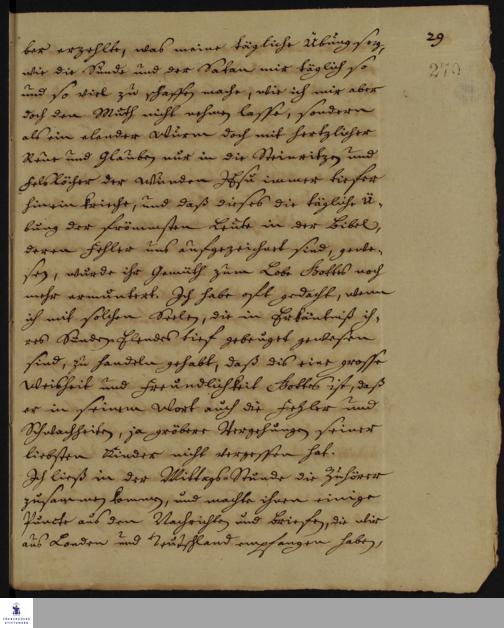 29
270
ber erzehlte, was meine tägliche Übung sey,
wie die Sünde und der Satan mir täglich so
und so viel zu schaffen mache, wie ich mir aber
doch den Muth nicht nehmen lasse, sondern
als ein elender Wurm doch mit hertzlicher
Reue und Glauben nur in die Steinritzen und
Felslöcher der Wunden JEsu immer tiefer
hinein krieche, und daß dieses die tägliche Ü-
bung der frömmsten Leute in der Bibel,
deren Fehler uns aufgezeichnet sind, gewe-
sen, wurde ihr Gemüth zum Lobe Gottes noch
mehr ermuntert. Ich habe oft gedacht, wenn
ich mit solchen Seelen, die in Erkäntniß ih-
res Sünden-Elendes tief gebeuget gewesen
sind, zu handeln gehabt, daß dis eine grosse
Weisheit und Freundlichkeit Gottes ist, daß
er in seinem Wort auch die Fehler und
Schwachheiten, ja gröbere Vergehungen seiner
liebsten Kinder nicht vergessen hat.
Ich ließ in der Mittags-Stunde die Zuhörer
zusammen kommen, und machte ihnen einige
Puncte aus den Nachrichten und Briefen, die wir
aus London und Teutschland empfangen haben,
FRANCKESCHE
STIFTUNGEN